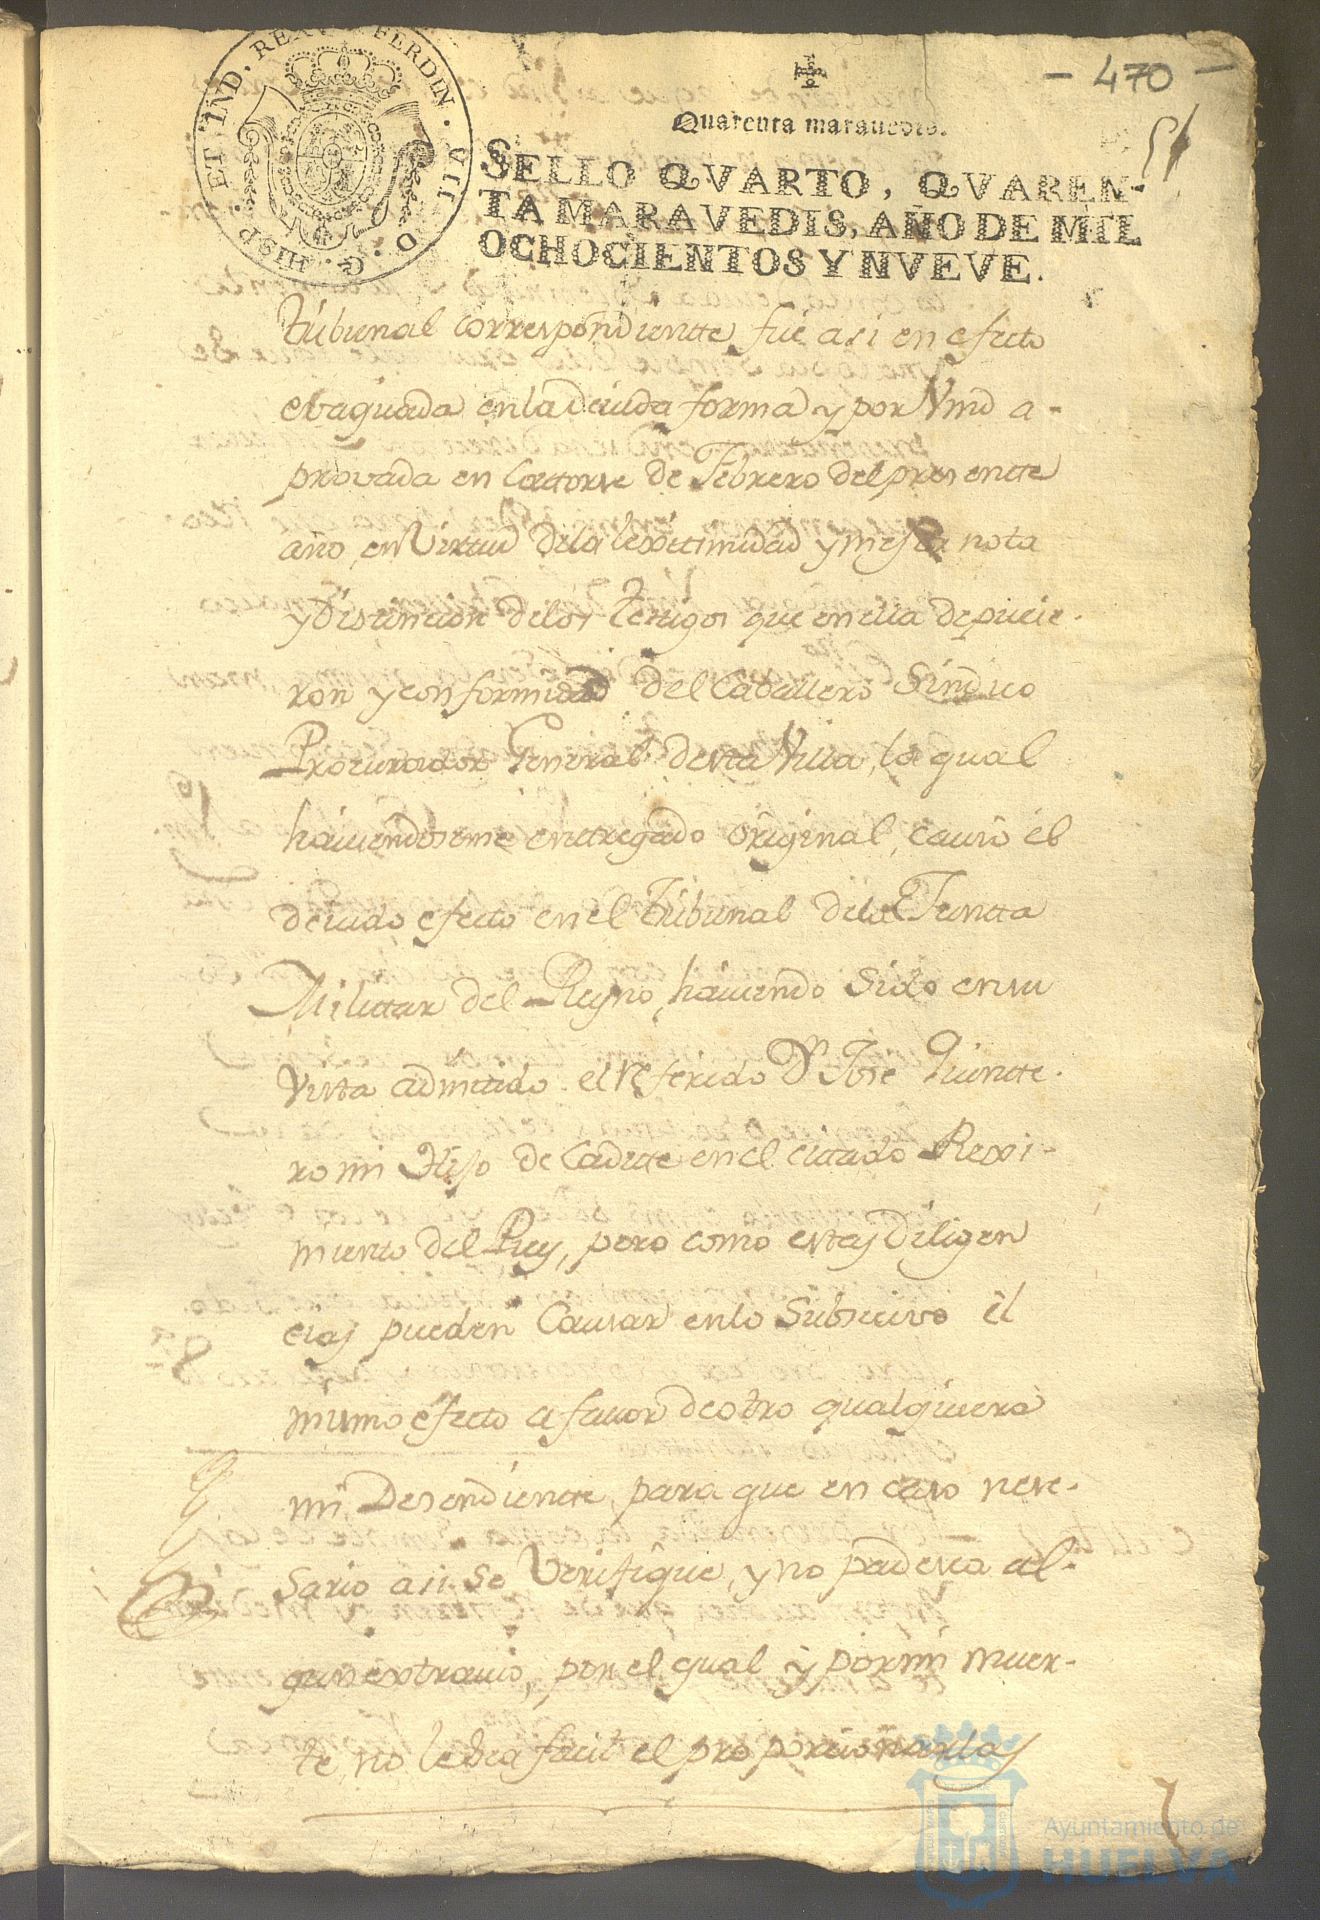 - 470 -
51
Quarenta marauedis.
SELLO QVARTO, QVAREN-
TA MARAVEDIS, AÑO DE MIL
OCHOCIENTOS Y NVEVE.
HISP. ET IND. REX FERDIN. VII D. G.
tribunal correspondientte, fue asi en efecto
ebaquada en la Devida forma y por Vmd a-
provada en Catorse de Febrero del presentte
año, en Virtud de la lexitimidad y mejor nota
y Distincion de los Testigos que en ella depucie-
ron y conformidad del Caballero Sindico
Procurador General desta Villa, la qual
haviendoseme enttregado original, causó él
devido efecto en el tribunal de la Juntta
Militar del Reyno, haviendo sido en su
Vista admitido el referido Dn Jose Quintte-
ro mi Hijo de Cadette en el citado Rexi-
miento del Rey, pero como estas Diligen
cias pueden Causar en lo Subsecivo él
mismo efecto a favor de otro qualquiera
mi Desendientte, para que en caso nese-
sario asi se Verifique, y no padesca al-
gun extravio, por el qual y por mi muer-
te, no le sea facil el proporcionarlas
Ayuntamiento de
HUELVA